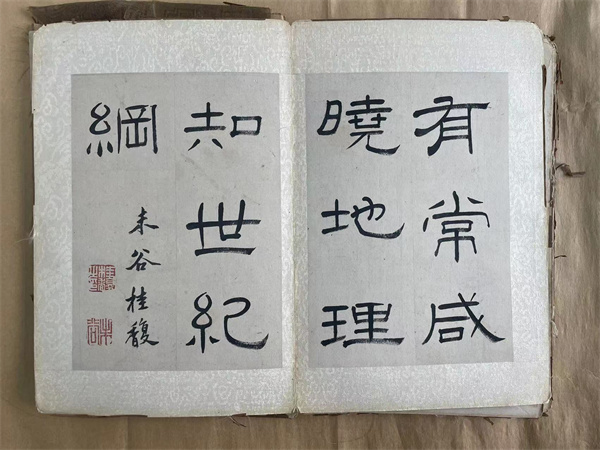 有常咸
曉地理
知世紀
綱
未谷桂馥